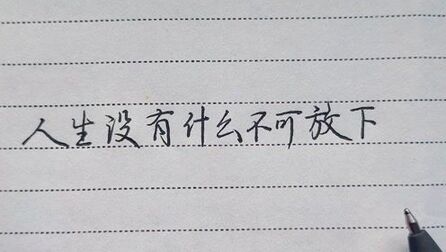 人生没有什么不可放下